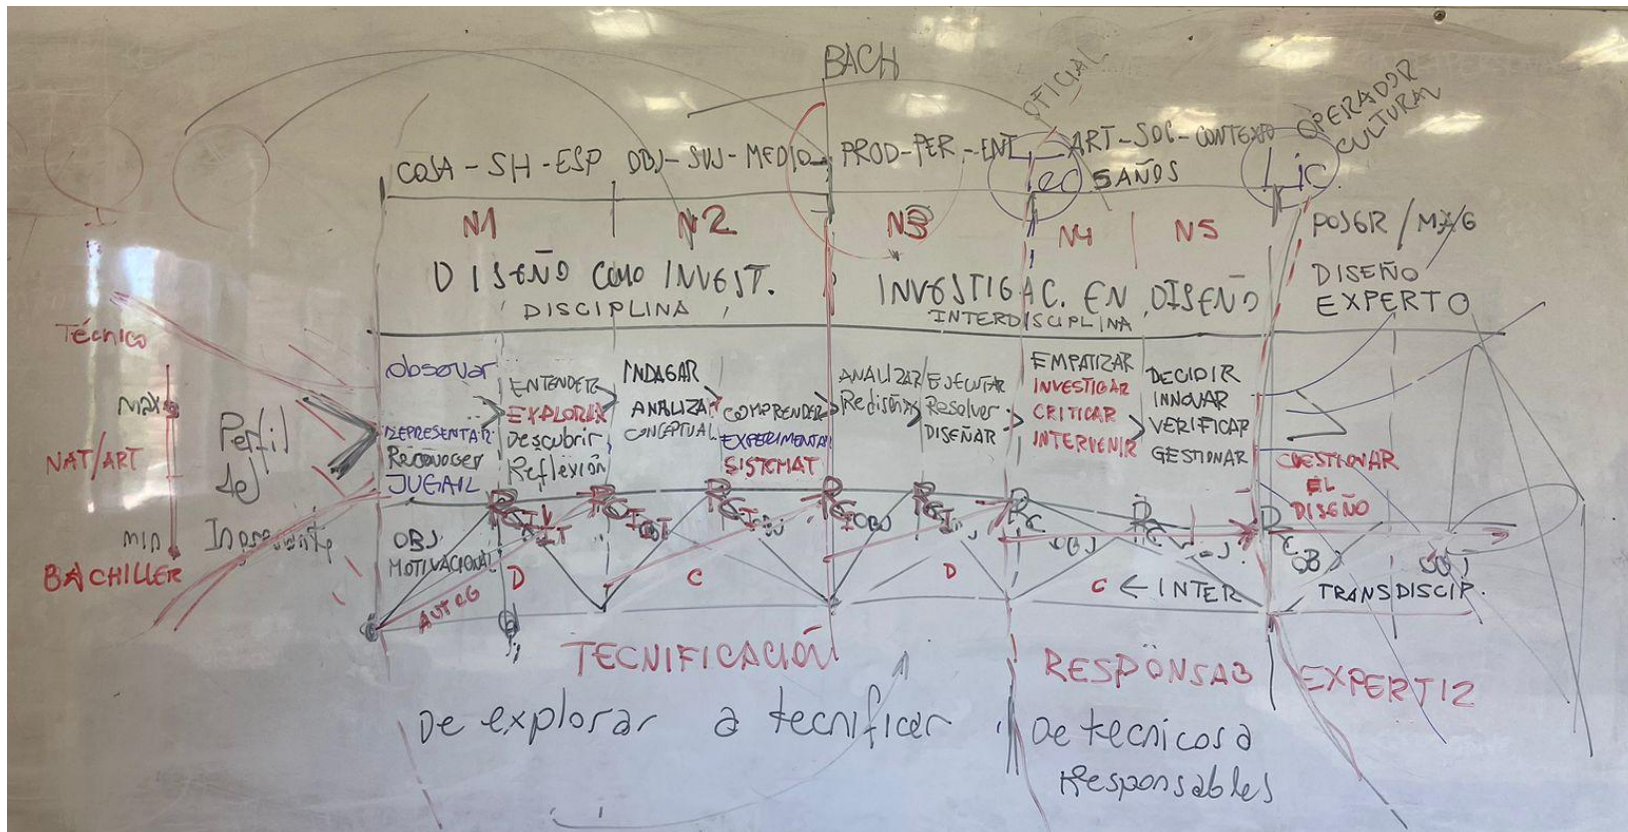 BACH
OFICIAL
OPERADOR
CULTURAL
COSA - SH - ESP OBJ - SUJ - MEDIO PROD - PER - ENT ART - SOC - CONTEXO
Tec 5 AÑOS Lic.
N1 N2 N3 N4 N5 POSGR / MAG
DISEÑO COMO INVEST. INVESTIGAC. EN DISEÑO
DISCIPLINA INTERDISCIPLINA
DISEÑO
EXPERTO
Técnico
MAX
NAT/ART
MIN
BACHILLER
Perfil
del
Ingresante
observar
REPRESENTAR
Reconocer
JUGAR
ENTENDER
EXPLORAR
Descubrir
Reflexión
INDAGAR
ANALIZAR
CONCEPTUAL
COMPRENDER
EXPERIMENTAR
SISTEMAT
ANALIZAR
Rediseñar
EJECUTAR
Resolver
DISEÑAR
EMPATIZAR
INVESTIGAR
CRITICAR
INTERVENIR
DECIDIR
INNOVAR
VERIFICAR
GESTIONAR
CUESTIONAR
EL
DISEÑO
OBJ
MOTIVACIONAL
D C D C ← INTER TRANSDISCIP.
TECNIFICACIÓN RESPONSAB EXPERTIZ
De explorar a tecnificar De tecnicos a
responsables